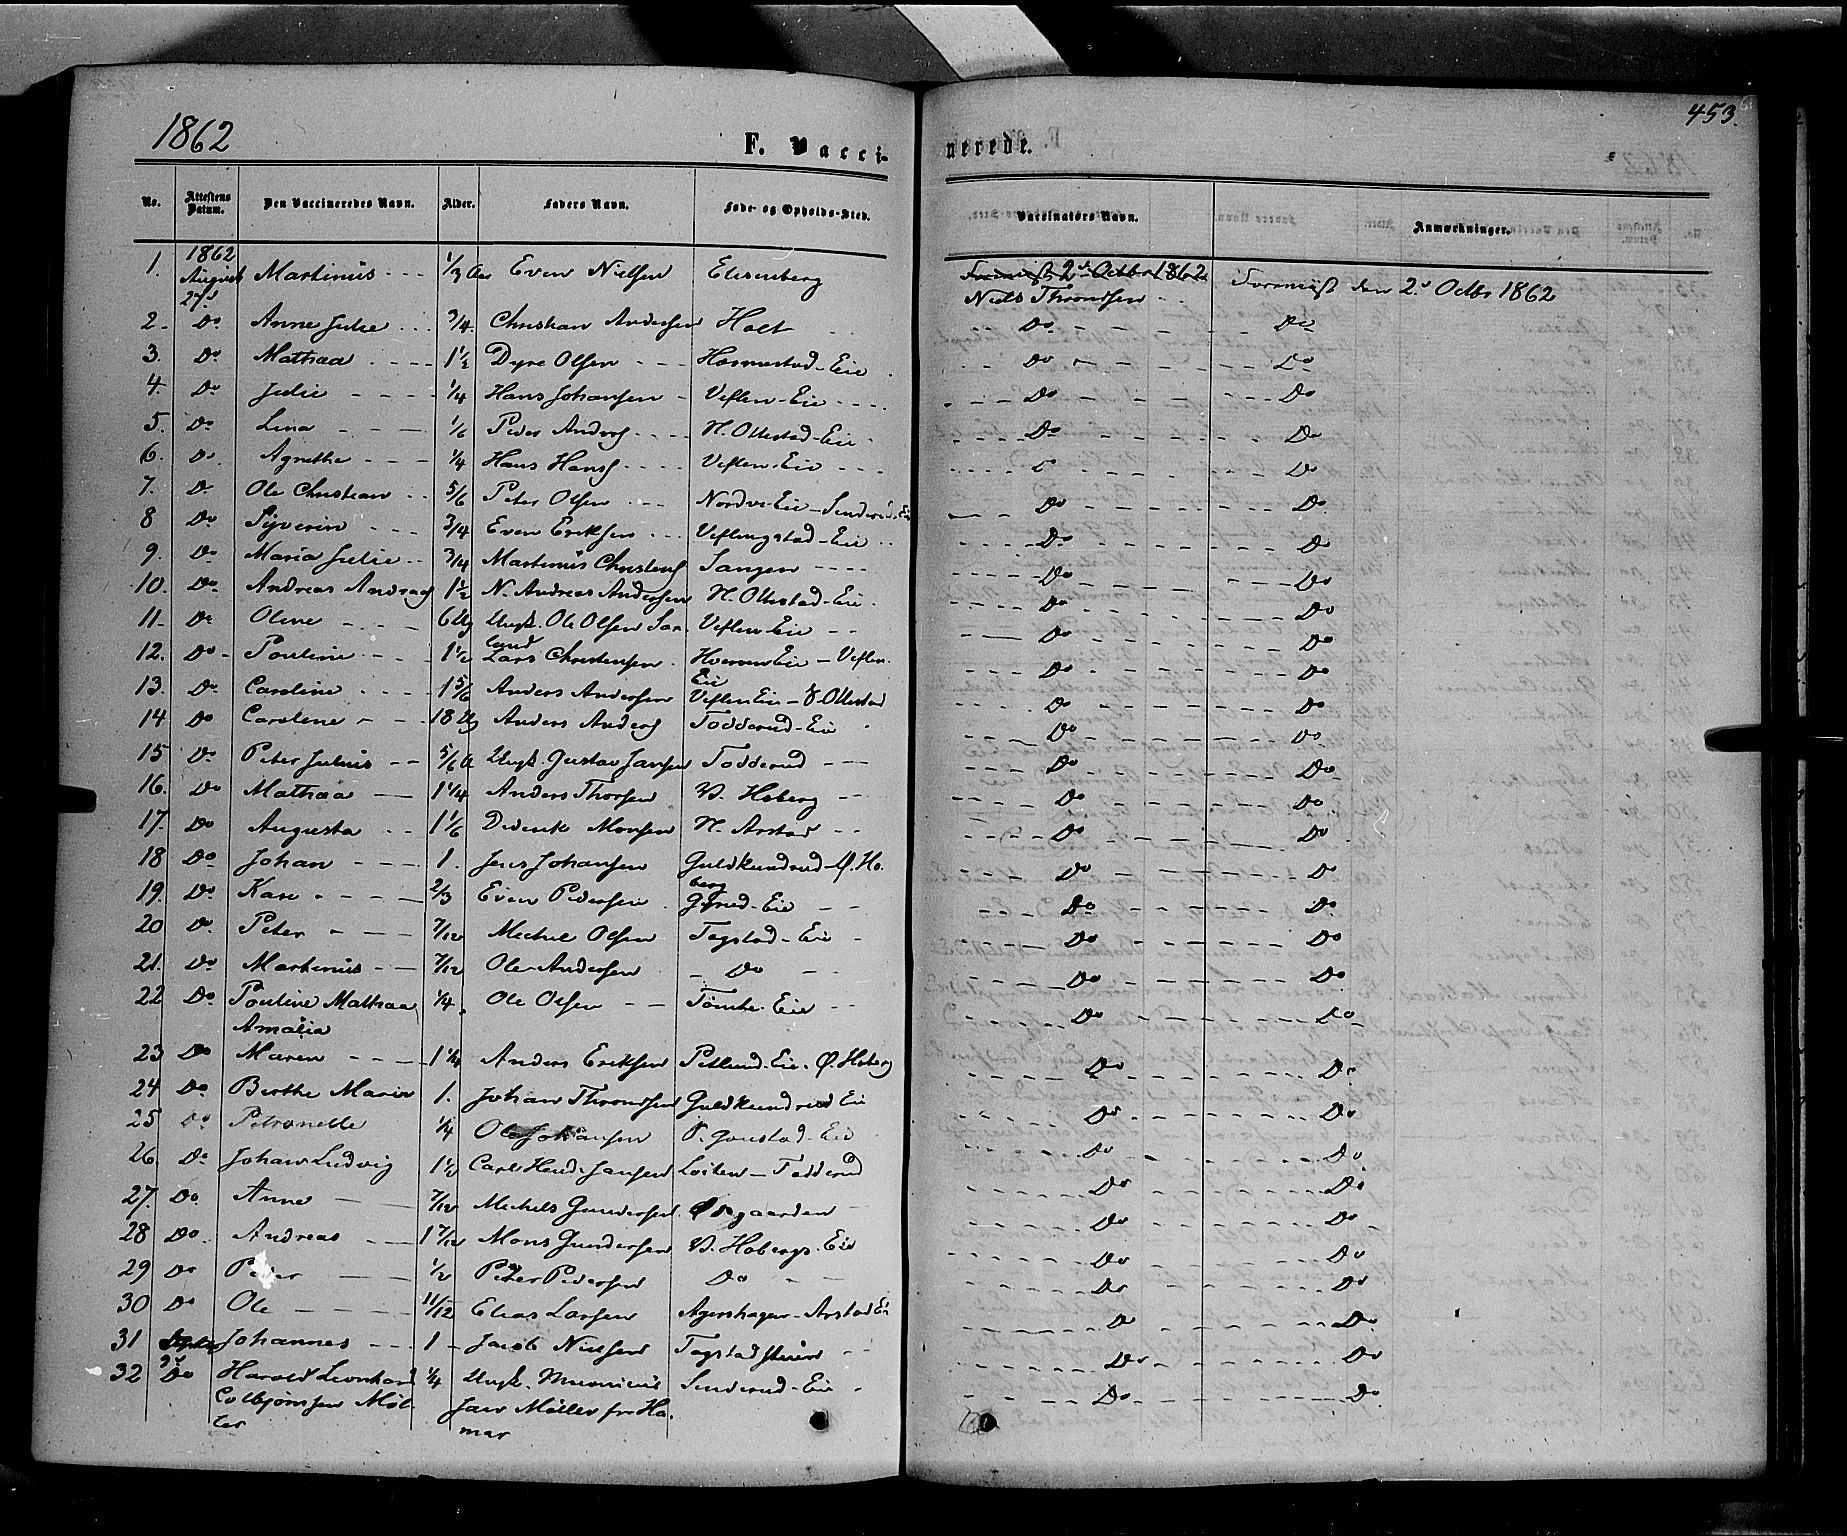 1862
453.
F. Vacci-
nerede.
No. Attestens Datum. Den Vaccineredes Navn. Alder. Faders Navn. Føde- og Opholds-Sted. Vaccinatørs Navn. Anmærkninger.
1. 1862 August 27d Martinus 1/3 Aar Even Nielsen Elisenberg Niels Throndsen Fremvist den 2d Octbr 1862
Fremvist 2d Octbr 1862
2. Do Anne Julie 3/4. Christian Andersen Holt Do Do
3. Do Mathea 1 1/2 Dyre Olsen Hommestad-Eie Do Do
4. Do Julie 1/4 Hans Johansen Veflen-Eie Do Do
5. Do Lina 1/6 Peder Anders N. Ottestad-Eie Do Do
6. Do Agnethe 1/4 Hans Hans Veflen-Eie Do
7. Do Ole Christian 5/6 Peter Olsen Nordvi-Eie - Sinderud-Eie Do Do
8 Do Syverin 3/4 Even Eriksen Veflingstad-Eie Do Do
9. Do Maria Julie 3/4 Martinus Christens Sangen Do Do
10. Do Andreas 1 1/2 N. Andreas Andersen N. Ottestad-Eie Do Do
11. Do Oline 6 Ug Ungk. Ole Olsen Sør-
lund Veflen Eie Do Do
12. Do Pouline 1 1/2 Lars Christensen Hvernen Eie - Veflen.
Eie Do Do
13. Do Caroline 1 5/6 Anders Andersen Veflen Eie - Ottestad Do Do
14 Do Caroline 18 Ug Anders Anders Todderud-Eie Do Do
15 Do Peter Julius 5/6 A Ungk. Gustav Jansen Todderud Do Do
16. Do Mathea 1 1/4 Anders Thorsen V. Hoberg Do Do
17. Do Augusta 1 1/6 Diderik Monsen N. Arstad Do Do
18 Do Johan 1. Jens Johansen Guldkundrud - Ø. Ho-
berg Do Do
19. Do Kari 2/3 Even Pedersen Gjørud-Eie Do Do
20 Do Peter 7/12 Michel Olsen Togstad-Eie Do Do
21. Do Martinus 7/12 Ole Andersen Do Do Do
22 Do Pouline Mathea 1/4. Ole Olsen Tomter-Eie Do Do
Amalia
23 Do Maren 1 1/4 Anders Eriksen Petlund-Eie. Ø. Hoberg Do Do
24 Do Berthe Marie 1. Johan Throndsen Guldkundrud Eie Do Do
25 Do Petronelle 1/4 Ole Johansen Gonstad-Eie Do Do
26. Do Johan Ludvig 1 1/2 Carl Hend. Jansen Loiten - Todderud Do Do
27. Do Anne 7/12 Michels Gundersen Opgaarden Do Do
28 Do Andreas 1 7/12 Mons Gundersen V. Hobergs. Eie Do Do
29 Do Peter 1/2 Peter Pedersen Do Do Do
30 Do Ole 11/12 Elias Larsen Agershagen - Arstad Eie Do Do
31 Septbr 3d Johannes 1 Jacob Nielsen Togstad Do Do
32 Do Harald Leonhard 1/4 Ungk. Sinderud-Eie Do Do
Colbjørnsen Møl-
ler
Jan Møller fra Ha-
mar